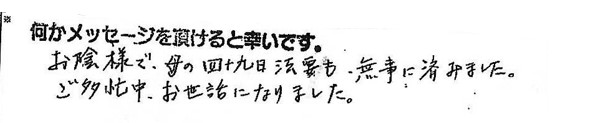 ※
何かメッセージを頂けると幸いです。
お陰様で、母の四十九日法要も、無事に済みました。
ご多忙中、お世話になりました。